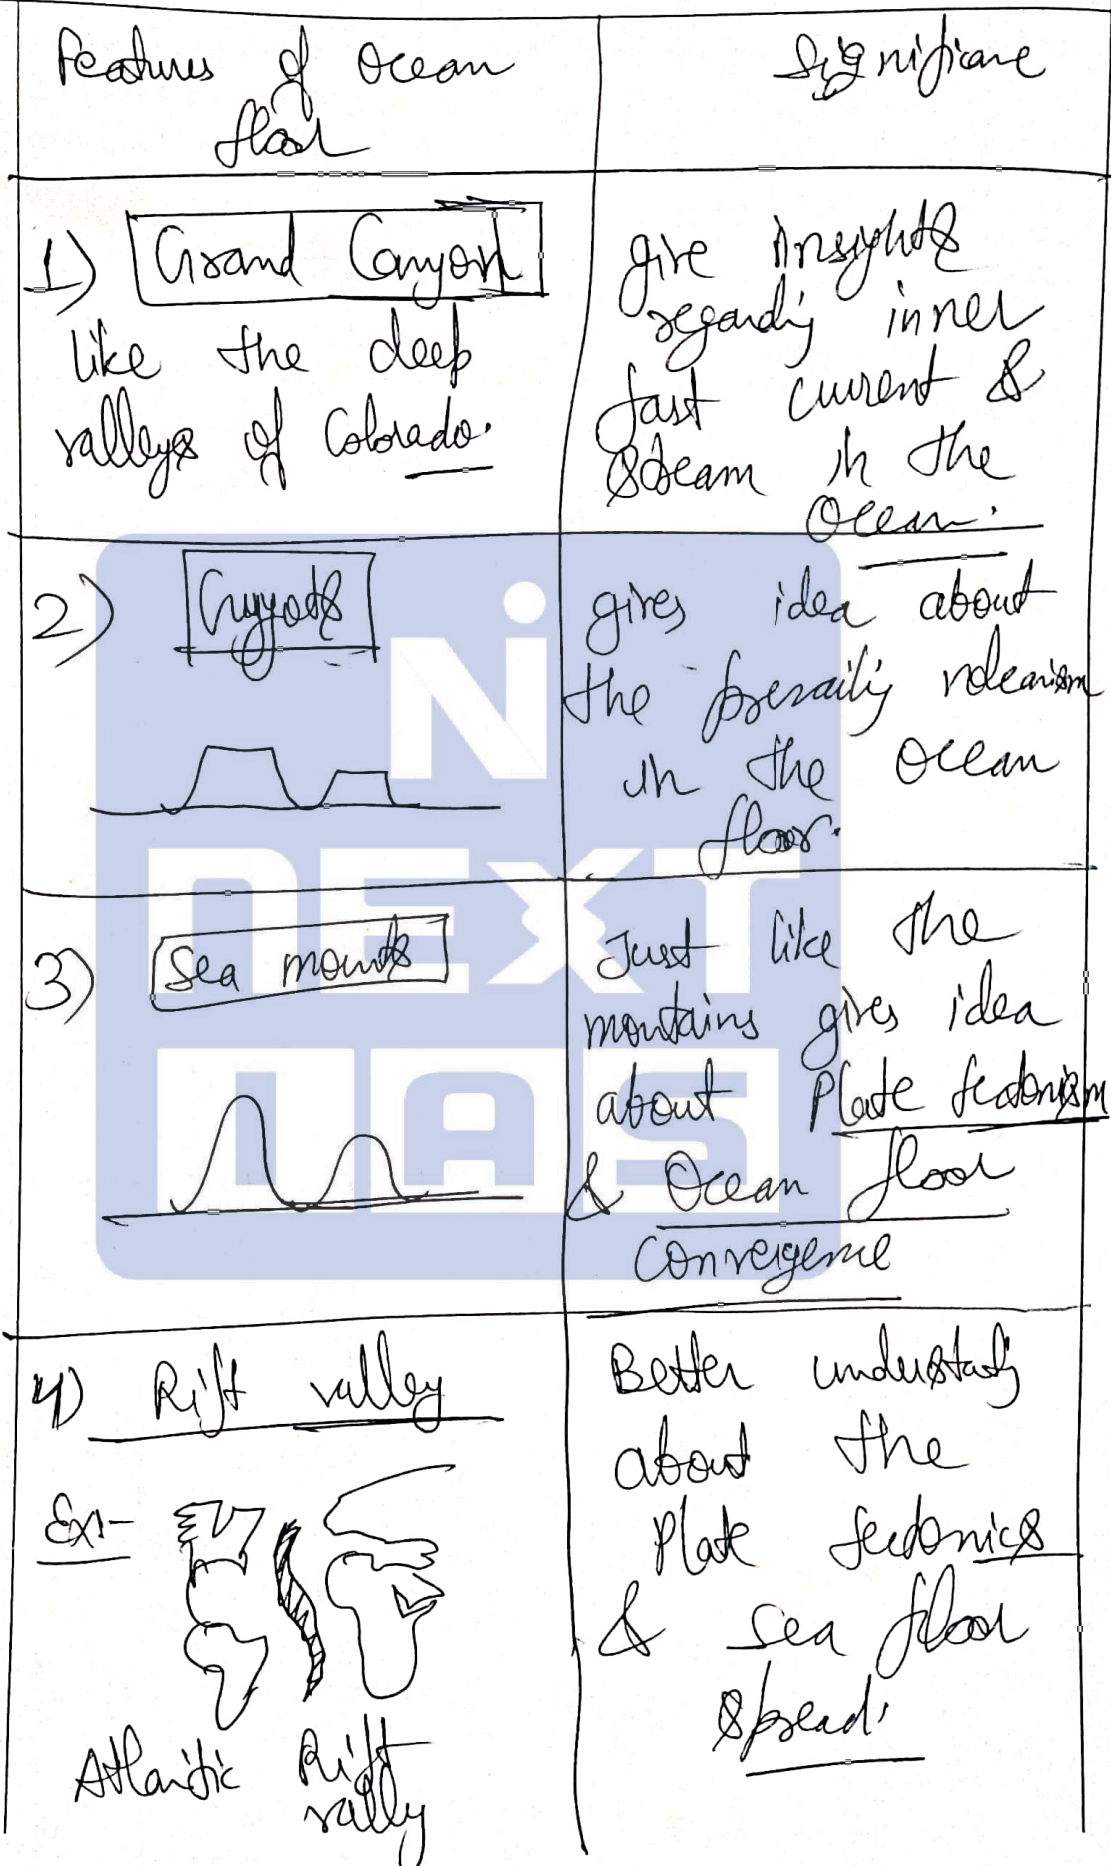 Features of Ocean floor
Significance
1) Grand Canyon
like the deep
valleys of Colorado.
give insights
regarding inner
fast current &
stream in the
Ocean.
2) Guyots
gives idea about
the prevailing volcanism
in the Ocean
floor.
3) Sea mounts
Just like the
montains gives idea
about Plate tectonism
& Ocean floor
Convergence
4) Rift valley
Ex:-
Atlantic Rift
vally
Better understadg
about the
Plate tectonics
& sea floor
spread.
Ni
NEXT
IAS